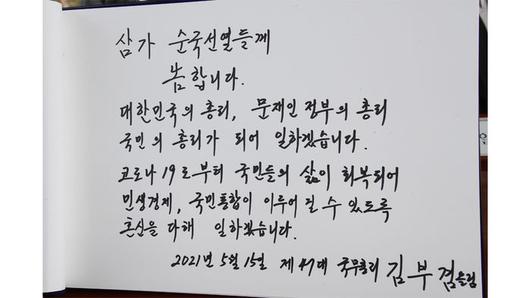 삼가 순국선열들께
告합니다.
대한민국의 총리, 문재인 정부의 총리
국민의 총리가 되어 일하겠습니다.
코로나 19로부터 국민들의 삶이 회복되어
민생경제, 국민통합이 이루어 질 수 있도록
혼신을 다해 일하겠습니다.
2021년 5월 15일 제 47대 국무총리 김부겸 드림